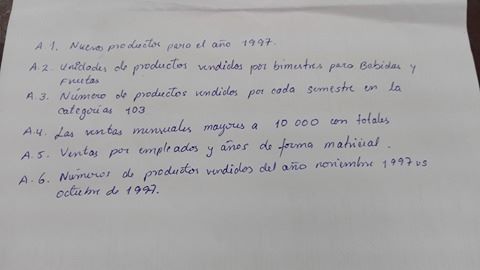 A.1. Nuevos productos para el año 1997.
A.2. Unidades de productos vendidos por bimestres para Bebidas y
Frutas
A.3. Número de productos vendidos por cada semestre en la
categorías 103
A.4. Las ventas mensuales mayores a 10 000 con totales
A.5. Ventas por empleados y años de forma matricial.
A.6. Números de productos vendidos del año noviembre 1997 vs
octubre de 1997.